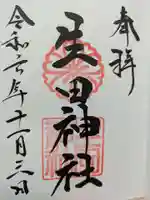 奉拝
生田神社
令和六年十一月三日